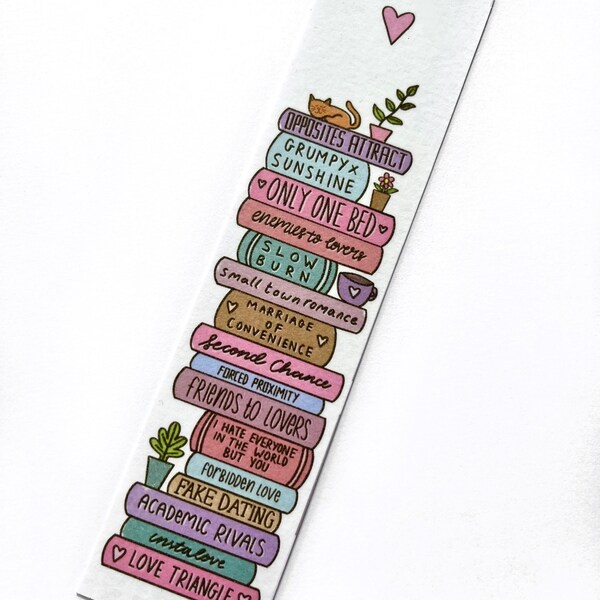 OPPOSITES ATTRACT
GRUMPY x
SUNSHINE
ONLY ONE BED
enemies to lovers
SLOW
BURN
small town romance
MARRIAGE
OF
CONVENIENCE
Second Chance
FORCED PROXIMITY
friends to LOVERS
I HATE EVERYONE
IN THE WORLD
BUT YOU
forbidden love
FAKE DATING
ACADEMIC RIVALS
instalove
LOVE TRIANGLE